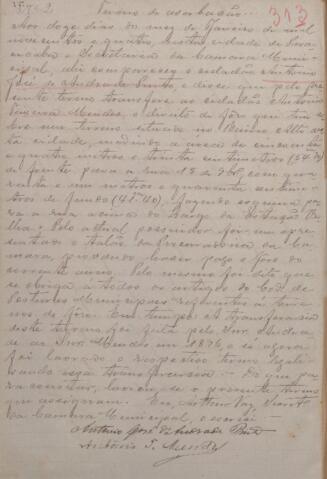 313
Termo de
Aos doze dias do mez de Janeiro de mil
novecentos e quatro, nesta cidade de
e Secretaria da Camara Muni-
cipal, ahi compareceu o cidadão Antonio
José de Andrade Pinto, e disse que pelo pre-
sente termo transfere ao cidadão Antonio
Mendes, o direito de fôro que tem so-
bre um terreno situado no Bairro Alto des-
ta cidade, medindo a area de cincoenta
e quatro metros e trinta centimetros (54.30)
de frente para a rua 15 de com qua-
renta e um metros e quarenta centime-
tros de fundo (41.40) fazendo esquina pa-
ra a rua acima do Largo da Estação
Pelo actual possuidor foi me apre-
sentado o talão da Procuradoria da Ca-
mara, provando haver pago o fôro do
corrente anno. Pelo mesmo foi dito que
se obriga a todos os artigos do Cod. de
Posturas Municipaes referentes á terre-
nos de fôro. Em tempo: A transferencia
deste terreno foi feita pelo Snr. Andra-
de ao Snr. Mendes em 1896, e só agora
foi lavrado o respectivo termo legali-
sando essa transferencia. Do que pa-
ra constar, lavrou-se o presente termo
que assignaram. Eu, Arthur
da Camara Municipal, o escrevi.
Antonio José de Andrade Pinto
Antonio F. Mendes